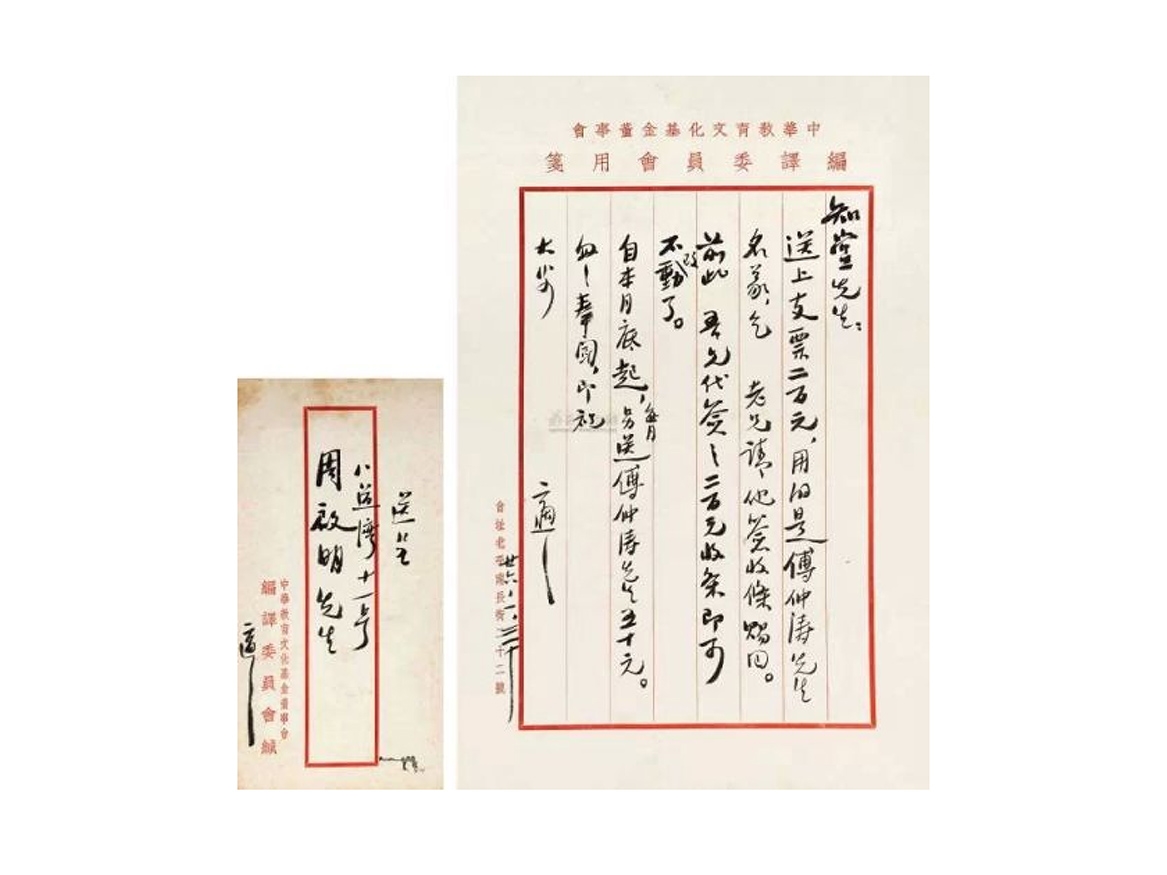 中華教育文化基金董事會
編譯委員會用箋
知堂先生：
送上支票二百元，用的是傅仲濤先生
名義，乞 老兄請他簽收條賜回。
前此 吾兄代簽之二百元收条即可
不改動了。
自本月底起，每月另送傅仲濤先生五十元。
匆匆奉聞，即祝
大安
適
會址 南長街 十二號
送呈
八道灣十一号
周啟明先生
中華教育文化基金董事會
編譯委員會緘
適